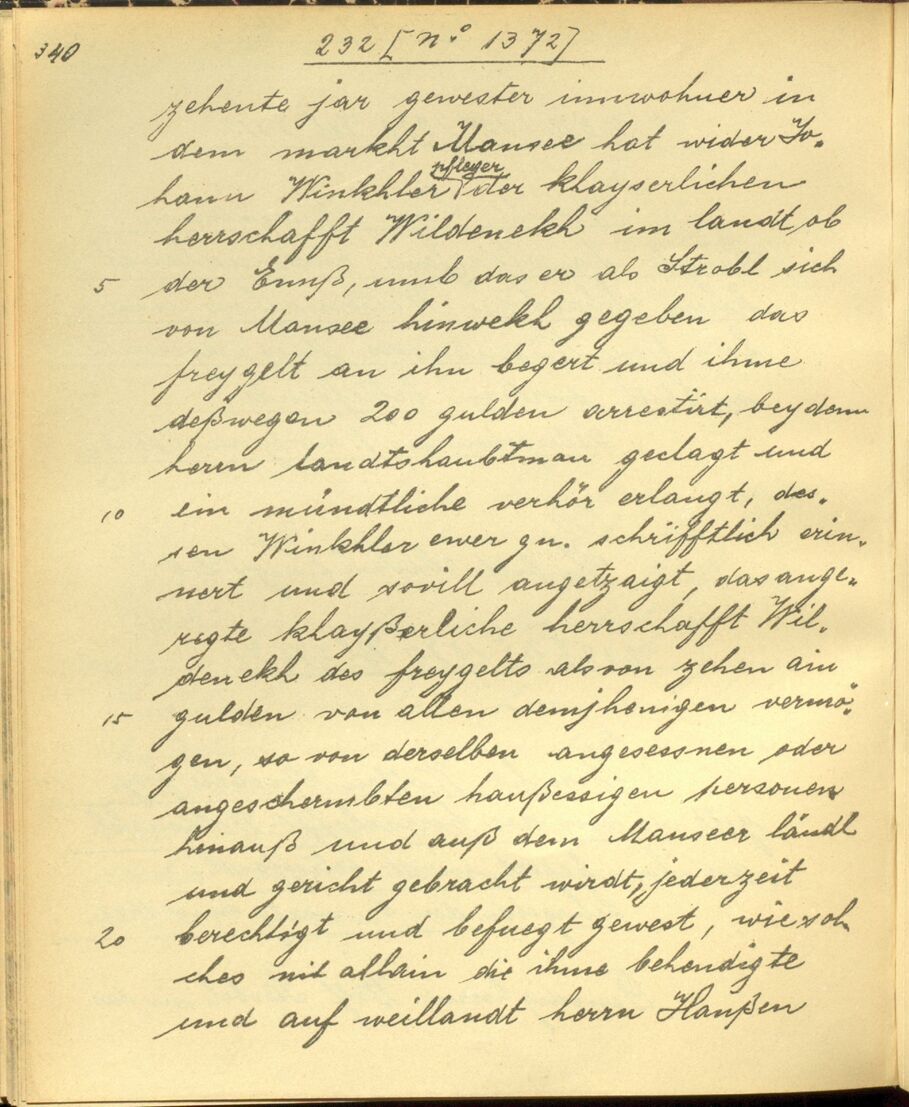 340
232 [n.° 1372]
zehente jar gewester innwohner in
dem markht Mansee hat wider Jo-
hann Winkhler pfleger der khayserlichen
herrschafft Wildenekh im landt ob
5 der Ennß, umb das er als Strobl sich
von Mansee hinwekh gegeben das
freygelt an ihn begert und ihme
deßwegen 200 gulden arrestirt, bey dem
herrn landtshaubtman geclagt und
10 ein mündtliche verhör erlangt, des-
sen Winkhler ewer gn. schrifftlich erin-
nert und sovill angetzaigt, das ange-
regte khayßerliche herrschafft Wil-
denekh des freygelts als von zehen ain
15 gulden von allen demjhenigen vermö-
gen, so von derselben angesessnen oder
angeschermbten haußessigen personen
hinauß und auß dem Manseer ländl
und gericht gebracht wirdt, jederzeit
20 berechtigt und befuegt gewest, wie sol-
ches nit allain die ihme behendigte
und auf weillandt herrn Hanßen